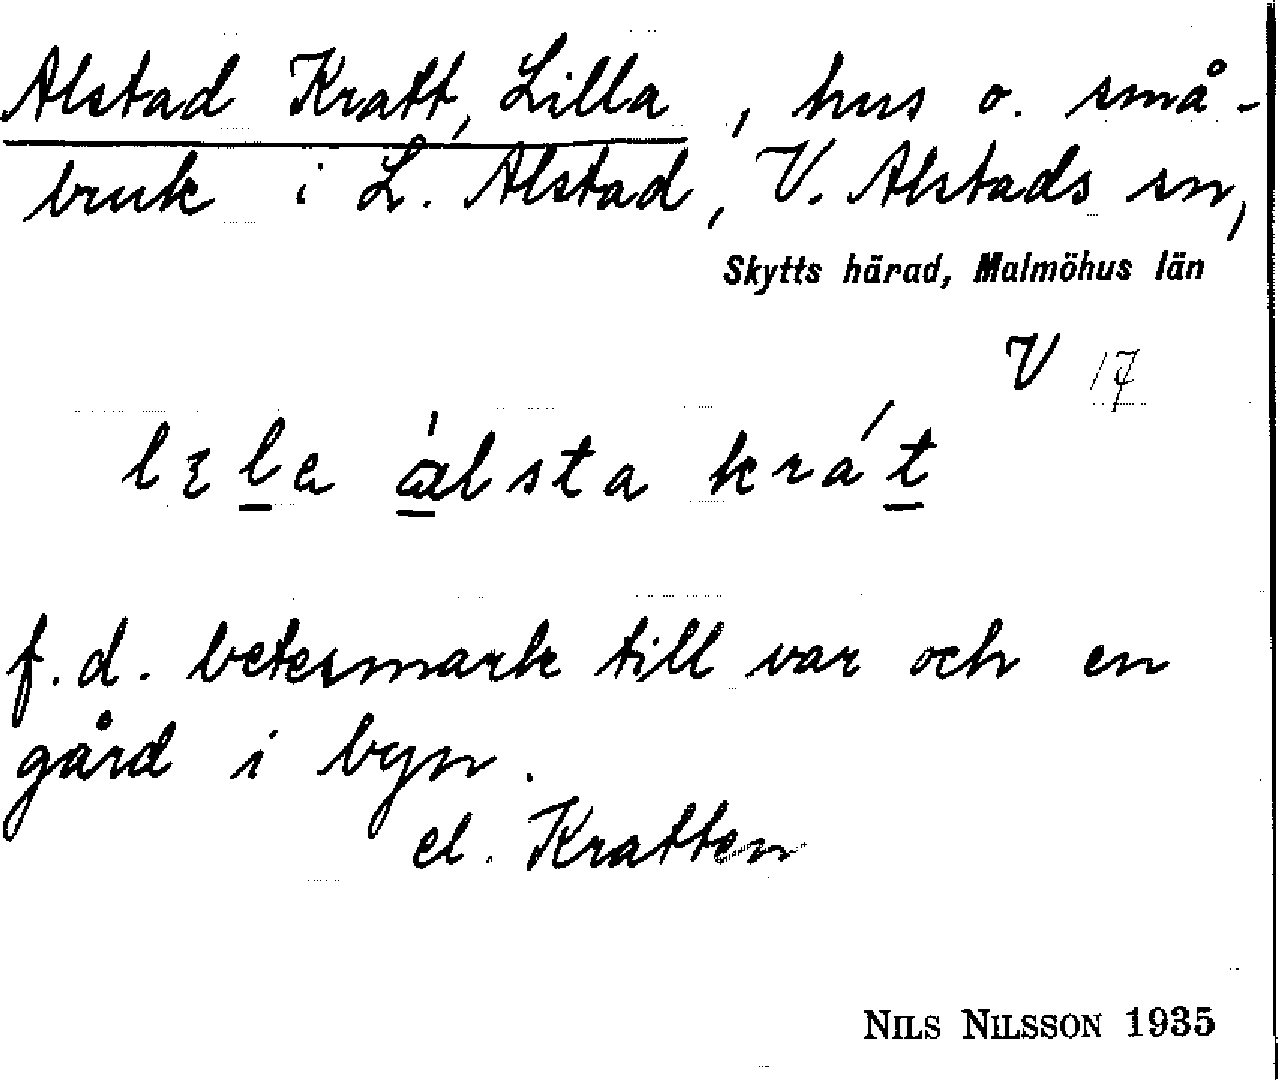 Alstad Kratt, Lilla, hus o. små-
bruk i L. Alstad, V. Alstads sn,
Skytts härad, Malmöhus län
V 17
lɛla älsta krát
f.d. betesmark till var och en
gård i byn.
el. Kratten
NILS NILSSON 1935